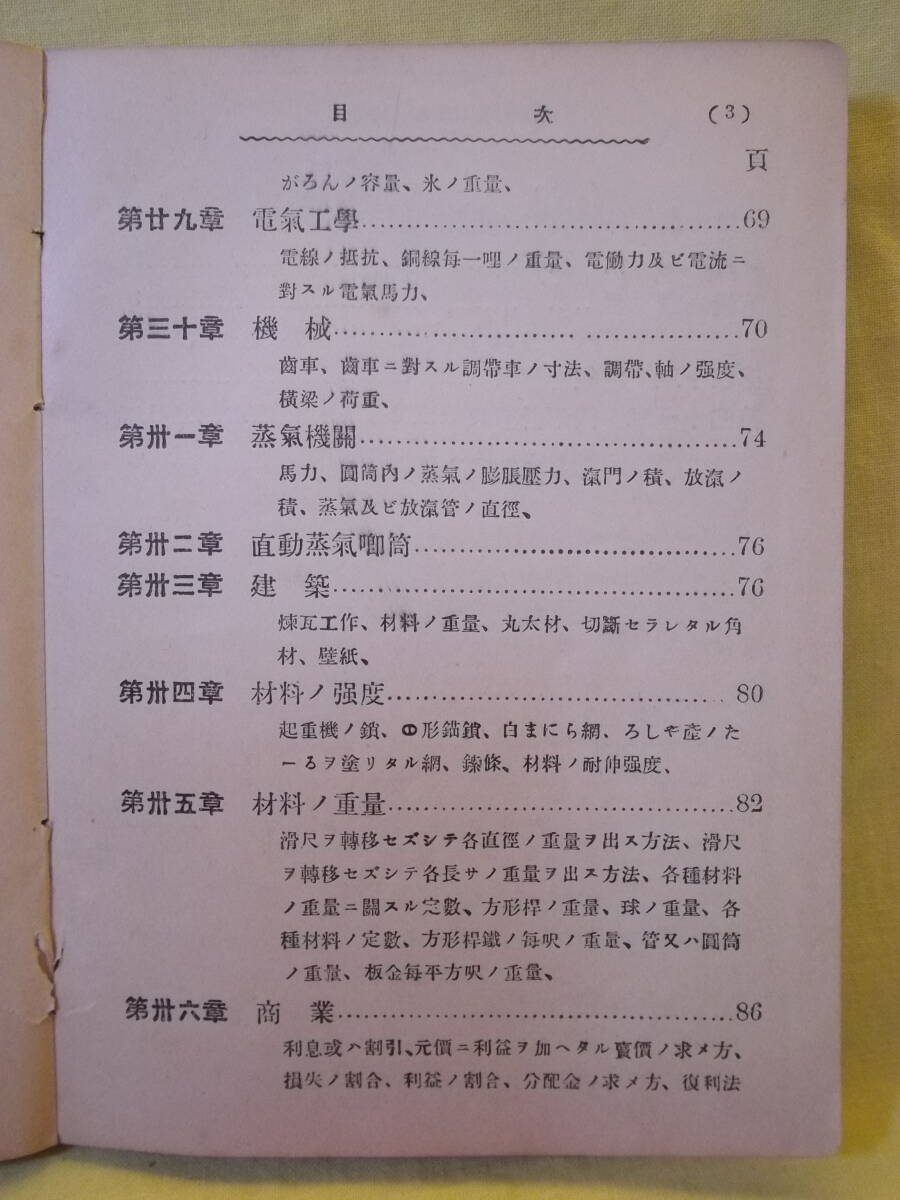 目次 (3)
頁
がろんノ容量、氷ノ重量、
第廿九章 電氣工學……………………………………69
電線ノ抵抗、銅線每一哩ノ重量、電働力及ビ電流ニ
對スル電氣馬力、
第三十章 機械……………………………………70
齒車、齒車ニ對スル調帶車ノ寸法、調帶、軸ノ强度、
橫梁ノ荷重、
第卅一章 蒸氣機關……………………………………74
馬力、圓筒內ノ蒸氣ノ膨脹壓力、滊門ノ積、放滊ノ
積、蒸氣及ビ放滊管ノ直徑、
第卅二章 直動蒸氣喞筒……………………………………76
第卅三章 建築……………………………………76
煉瓦工作、材料ノ重量、丸太材、切斷セラレタル角
材、壁紙、
第卅四章 材料ノ强度……………………………………80
起重機ノ鎖、形錨鎖、白まにら綱、ろしや產ノた
ーるヲ塗リタル綱、條、材料ノ耐伸强度、
第卅五章 材料ノ重量……………………………………82
滑尺ヲ轉移セズシテ各直徑ノ重量ヲ出ス方法、滑尺
ヲ轉移セズシテ各長サノ重量ヲ出ス方法、各種材料
ノ重量ニ關スル定數、方形桿ノ重量、球ノ重量、各
種材料ノ定數、方形桿鐵ノ每呎ノ重量、管又ハ圓筒
ノ重量、板金每平方呎ノ重量、
第卅六章 商業……………………………………86
利息或ハ割引、元價ニ利益ヲ加ヘタル賣價ノ求メ方、
損失ノ割合、利益ノ割合、分配金ノ求メ方、復利法